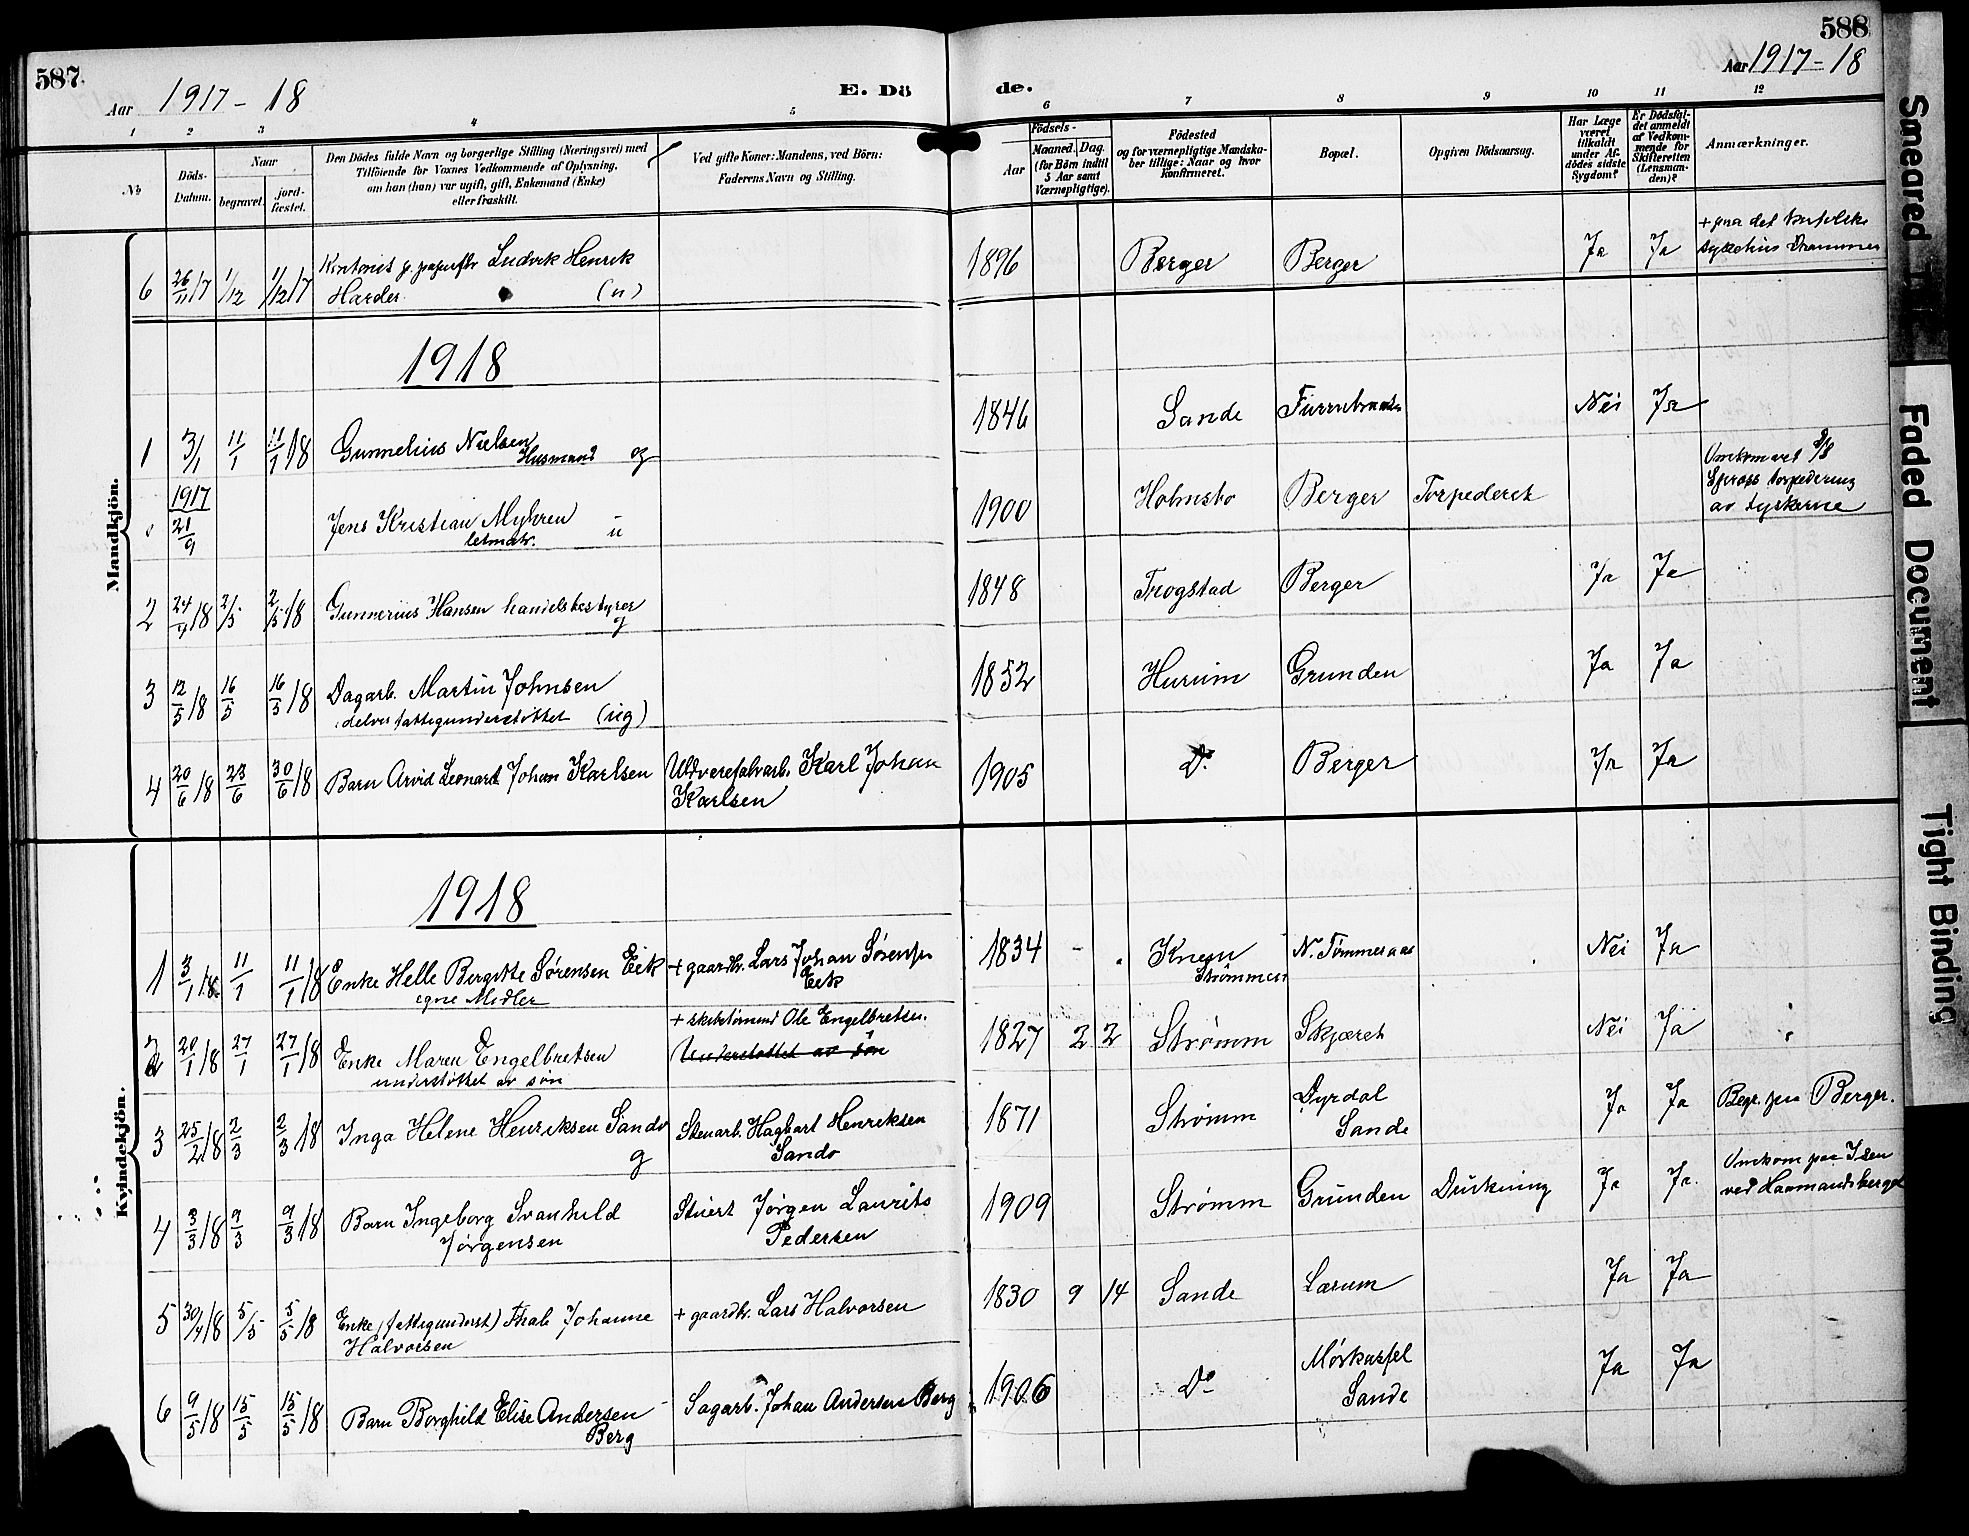 587
Aar 1917-18
E. Dö
de.
588
Aar 1917-18
1 2 3 4 5 6 7 8 9 10 11 12
No
Döds-
Datum.
Naar
begravet.
jord-
fæstet.
Den Dödes fulde Navn og borgerlige Stilling (Næringsvei) med
Tilföiende for Voxnes Vedkommende af Oplysning,
om han (hun) var ugift, gift, Enkemand (Enke)
eller fraskilt.
Ved gifte Koner: Mandens, ved Börn:
Faderens Navn og Stilling.
Födsels-
Aar
Maaned. Dag.
(for Börn indtil
5 Aar samt
Værnepligtige).
Födested
og for værnepligtige Mandska-
ber tillige: Naar og hvor
konfirmeret.
Bopæl.
Opgiven Dödsaarsag.
Har Læge
været
tilkaldt
under Af-
dödes sidste
Sygdom?
Er Dödsfal-
det anmeldt
af Vedkom-
mende for
Skifteretten
(Lensman-
den)?
Anmærkninger.
Mandkjön.
6 26/11 17 1/12 1/12 17 Ludvik Henrik
Harder (u) 1896 Berger Berger Ja Ja
1918
1 3/1 11/1 11/1 18 Gunnelius Nielsen
Husmand 1846 Sande Nei Ja
1917
21/9 Jens Kristian Myhren
letmatr. u 1900 Holmsbo Berger Torpederet
torpedering
av tyskerne
2 24/4 18 2/5 2/5 18 Gunnerius Hansen handelsbestyrer
g 1848 Trogstad Berger Ja Ja
3 12/5 18 16/5 16/5 18 Dagarb. Martin Johnsen
delvis fattigunderstøttet (ug) 1852 Hurum Grunden Ja Ja
4 20/6 18 23/6 30/6 18 Barn Arvid Leonard Johan Karlsen Karl Johan
Karlsen 1905 Do Berger Ja Ja
Kvindekjön.
1918
1 3/1 18 11/1 11/1 18 Enke Helle Bergitte Sørensen Eik + gaardbr. Lars Johan Sørensen
egne Midler Eik 1834 Knem
Strømmen N. Tømmeraas Nei Ja
2 20/1 18 27/1 27/1 18 Enke Maren Engelbretsen
understøttet av søn + skibstømmd Ole Engelbretsen.
Understøttet av søn 1827 2 2 Strømm Skjæret Nei Ja
3 25/2 18 2/3 2/3 18 Inga Helene Henriksen Sando
g Stenarb. Hagbart Henriksen
Sando 1871 Strømm Dyrdal
Sande Ja Ja Begr. paa Berger.
4 3/3 18 9/3 9/3 18 Barn Ingeborg Svanhild
Jørgensen Stuert Jørgen Laurits
Pedersen 1909 Strømm Grunden Drukning Ja Ja Omkom paa Isen
ved Haamandsberget
5 30/4 18 5/5 5/5 18 Enke (fattigunderst) Johanne
Halvorsen + gaardbr. Lars Halvorsen 1830 9 14 Sande Lærum Ja Ja
6 9/5 18 15/5 15/5 18 Barn Borghild Elise Andersen
Berg Sagarb. Johan Andersen Berg 1906 Do
Sande Ja Ja
Smeared
Faded Document
Tight Binding